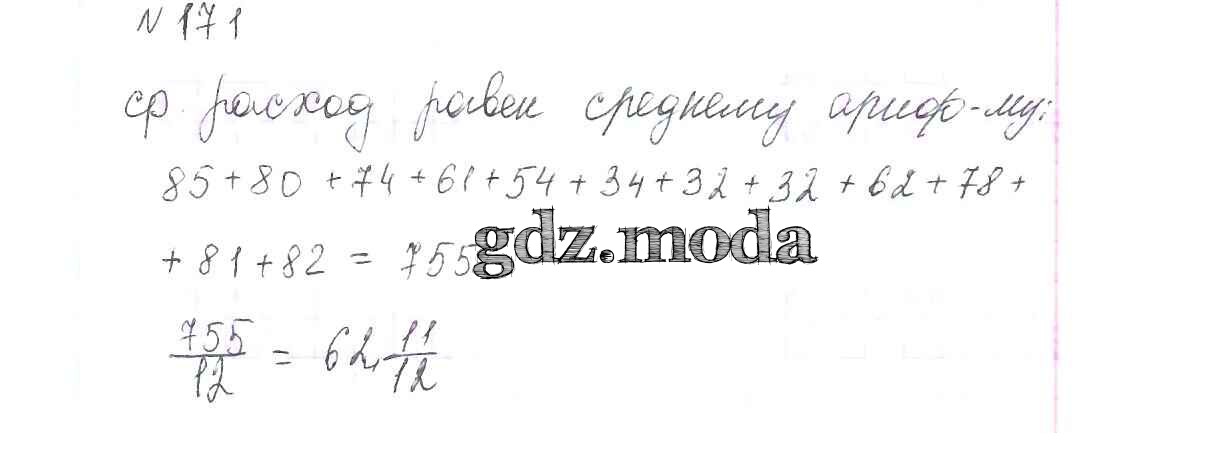 № 171
ср. расход равен среднему ариф-му:
85 + 80 + 74 + 61 + 54 + 34 + 32 + 32 + 62 + 78 +
+ 81 + 82 = 755
gdz.moda
755/12 = 62 11/12